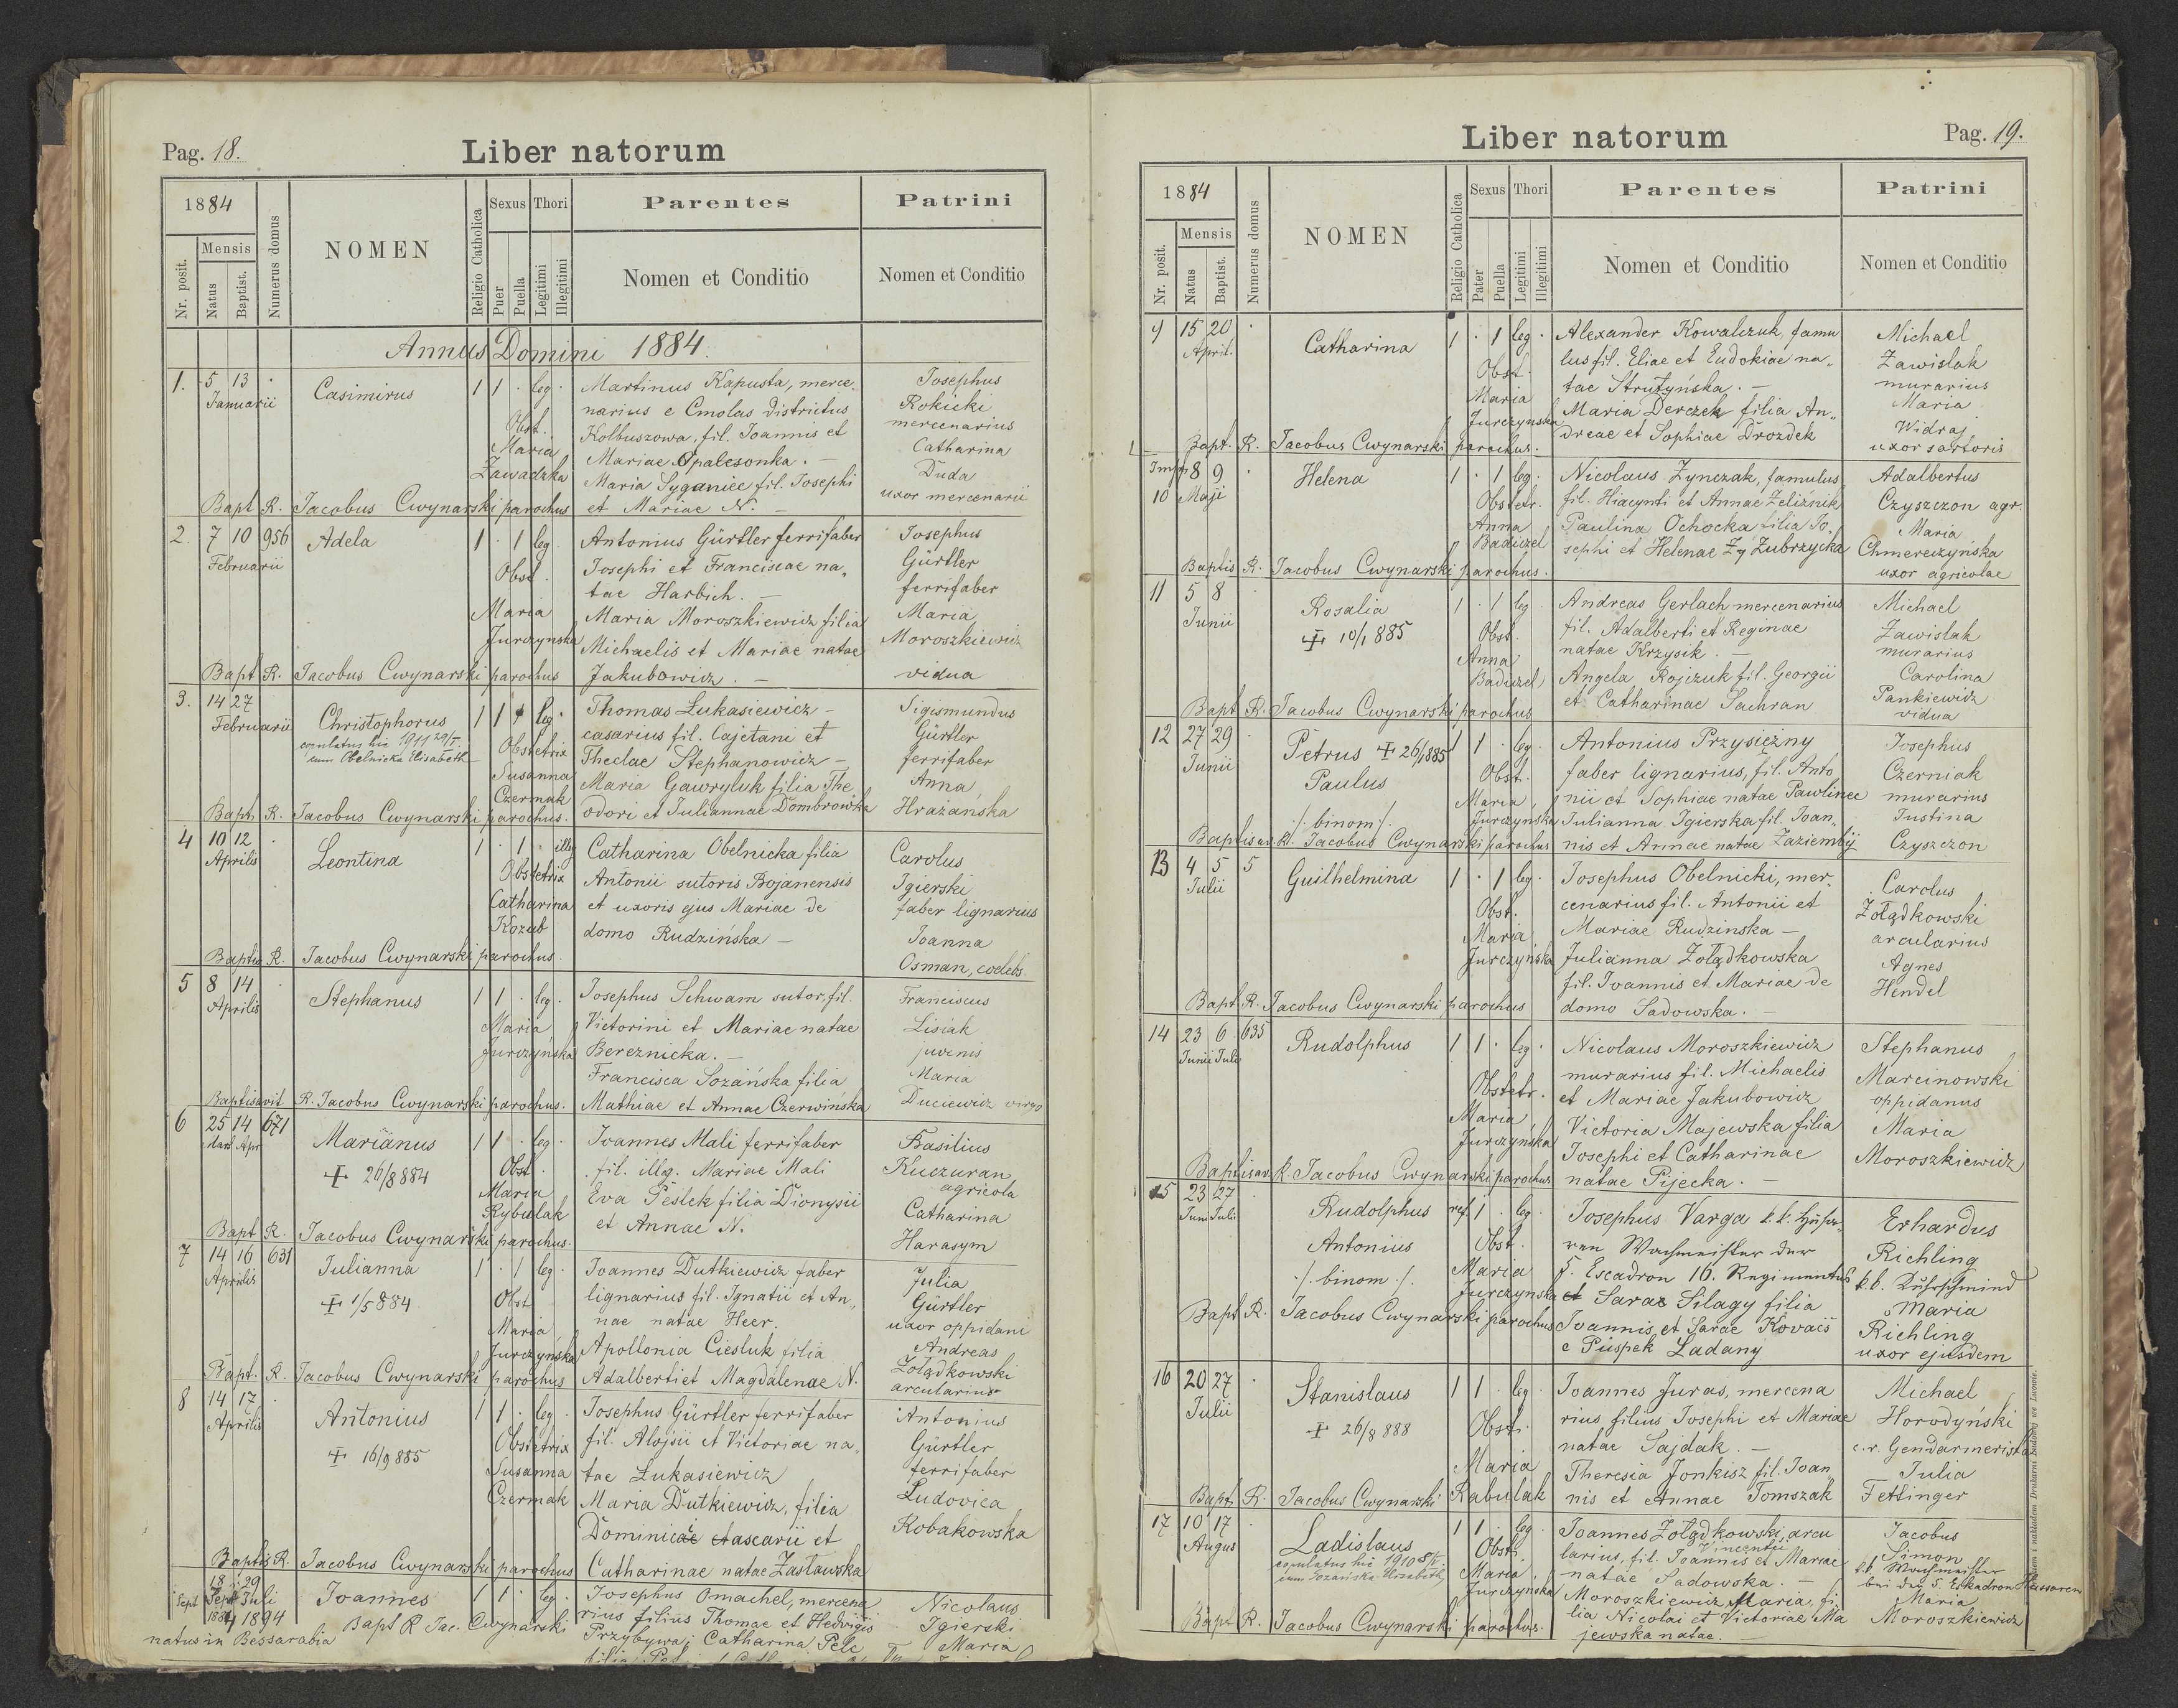 Pag. 18.
Liber natorum
1884
Nr. posit.
Mensis
Natus
Baptist.
Numerus domus
NOMEN
Religio Catholica
Sexus
Puer
Puella
Thori
Legitimi
Illegitimi
Parentes
Nomen et Conditio
Patrini
Nomen et Conditio
Annus Domini 1884.
1. 5 13 Januarii
Casimirus
1 1 · leg ·
Obst.
Maria
Zawadzka
Martinus Kapusta, merce-
narius e Cmolas districtus
Kolbuszowa, fil. Joannis et
Mariae Opalesonka. —
Maria Syganiec fil. Josephi
et Mariae N. —
Josephus
Rokicki
mercenarius
Catharina
Duda
uxor mercenarii
Bapt R. Jacobus Cwynarski parochus
2. 7 10 956 Februarii
Adela
1 · 1 leg
Obst.
Maria
Jurczynska
Antonius Gürtler ferrifaber
Josephi et Franciscae na„
tae Harbich. —
Maria Moroszkiewicz filia
Michaelis et Mariae natae
Jakubowicz. —
Josephus
Gürtler
ferrifaber
Maria
Moroszkiewicz
vidua
Bapt R. Jacobus Cwynarski parochus
3. 14 27 Februarii
Christophorus
copulatus hic 1911 29/I.
cum Obelnicka Elisabeth
1 1 leg ·
Obstetrix
Susanna
Czermak
Thomas Łukasiewicz —
casarius fil. Cajetani et
Theclae Stephanowicz —
Maria Gawryluk filia The
odori et Juliannae Dombrowska
Sigismundus
Gürtler
ferrifaber
Anna
Hrażańska
Bapt R. Jacobus Cwynarski parochus.
4 10 12 Aprilis
Leontina
1 · 1 · illeg
Obstetrix
Catharina
Kozub
Catharina Obelnicka filia
Antonii sutoris Bojanensis
et uxoris ejus Mariae de
domo Rudzińska —
Carolus
Igierski
faber lignarius
Joanna
Osman, coelebs.
Baptis R. Jacobus Cwynarski parochus.
5 8 14 Aprilis
Stephanus
1 1 · leg.
Maria
Jurczyńska
Josephus Schwam sutor, fil.
Victorini et Mariae natae
Bereznicka. —
Francisca Sozańska filia
Mathiae et Annae Czerwińska
Franciscus
Lisiak
juvenis
Maria
Duciewicz virgo
Baptisavit R. Jacobus Cwynarski parochus.
6 25 14 671 Mart Apr
Marianus
+ 26/8 884
1 1 · leg ·
Obst.
Maria
Rybulak
Joannes Mali ferrifaber
fil. illeg. Mariae Mali
Eva Peslek filia Dionysii
et Annae N.
Basilius
Kuczuran
agricola
Catharina
Harasym
Bapt R. Jacobus Cwynarski parochus.
7 14 16 631 Aprilis
Julianna
+ 1/5 884
1 · 1 leg ·
Obst
Maria
Jurczyńska
Joannes Dutkiewicz faber
lignarius fil. Ignatii et An„
nae natae Heer.
Apollonia Ciesluk filia
Adalberti et Magdalenae N.
Julia
Gürtler
uxor oppidani
Andreas
Żołądkowski
arcularius
Bapt. R. Jacobus Cwynarski parochus
8 14 17 Aprilis
Antonius
+ 16/9 885
1 1 · leg ·
Obstetrix
Susanna
Czermak
Josephus Gürtler ferrifaber
fil. Alojsii et Victoriae na„
tae Łukasiewicz
Maria Dutkiewicz, filia
Dominici ascarii et
Catharinae natae Zasławska
Antonius
Gürtler
ferrifaber
Ludovica
Robakowska
Baptis R. Jacobus Cwynarski parochus
18 29
Sept Sept Juli
1884 1894
Joannes
1 1 · leg ·
Josephus Omachel, mercena
rius filius Thomae et Hedwigis
Przybywaj Catharina Pele
Nicolaus
Igierski
Maria
Bapt R Jac. Cwynarski
natus in Bessarabia
Liber natorum
Pag. 19.
1884
Nr. posit.
Mensis
Natus
Baptist.
Numerus domus
NOMEN
Religio Catholica
Sexus
Pater
Puella
Thori
Legitimi
Illegitimi
Parentes
Nomen et Conditio
Patrini
Nomen et Conditio
9 15 20 April.
Catharina
1 · 1 leg ·
Obst.
Maria
Jurczynska
Alexander Kowalczuk, famu
lus fil. Eliae et Eudokiae na„
tae Strutyńska. —
Maria Derczek filia An„
dreae et Sophiae Drozdek
Michael
Zawislak
murarius
Maria
Widraj
uxor sartoris
Bapt. R. Jacobus Cwynarski parochus.
10 8 9 Maji
Helena
1 · 1 leg.
Obstetr.
Anna
Badiczel
Nicolaus Zynczak, famulus
fil. Hiacynti et Annae Zelizniek
Paulina Ochocka filia Jo„
sephi et Helenae Zubrzycka
Adalbertus
Czyszczon agr.
Maria
Chmereczyńska
uxor agricolae
Baptis R. Jacobus Cwynarski parochus.
11 5 8 Junii
Rosalia
+ 10/1 885
1 · 1 leg.
Obst.
Anna
Badiczel
Andreas Gerlach mercenarius
fil. Adalberti et Reginae
natae Krzysik. —
Angela Rojizuk fil. Georgii
et Catharinae Sachran
Michael
Zawislak
murarius
Carolina
Pankiewicz
vidua
Bapt. R. Jacobus Cwynarski parochus
12 27 29 Junii
Petrus + 26/1 885
Paulus
./. binom ./.
1 1 · leg.
Obst.
Maria
Jurczynska
Antonius Przysiężny
faber lignarius, fil. Anto
nii et Sophiae natae Pawliniec
Julianna Igierska fil. Joan„
nis et Annae natae Zaziembij
Josephus
Czerniak
murarius
Justina
Czyszczon
Baptisav. R. Jacobus Cwynarski parochus
13 4 5 5 Julii
Guilhelmina
1 · 1 leg ·
Obst.
Maria
Jurczyńska
Josephus Obelnicki, mer„
cenarius fil. Antonii et
Mariae Rudzinska —
Julianna Żołądkowska
fil. Joannis et Mariae de
domo Sadowska. —
Carolus
Żołądkowski
arcularius
Agnes
Hendel
Bapt. R. Jacobus Cwynarski parochus
14 23 6 635 Junii Julii
Rudolphus
1 1 · leg ·
Obstetr.
Maria
Jurczyńska
Nicolaus Moroszkiewicz
murarius fil. Michaelis
et Mariae Jakubowicz
Victoria Majewska filia
Josephi et Catharinae
natae Pijecka. —
Stephanus
Marcinowski
oppidanus
Maria
Moroszkiewicz
Baptisav. R. Jacobus Cwynarski parochus
15 23 27 Juni Julii
Rudolphus
Antonius
./. binom ./.
ref. 1 · leg ·
Obst.
Maria
Jurczynska
Josephus Varga k.k. Husa-
ren Wachmeister der
5. Escadron 16. Regimentes
et Sarae Silagy filia
Joannis et Sarae Kovacs
e Püspek Ladany
Erhardus
Richling
k.k. Kurschmied
Maria
Richling
uxor ejusdem
Bapt R. Jacobus Cwynarski parochus
16 20 27 Julii
Stanislaus
+ 26/8 888
1 1 · leg ·
Obst.
Maria
Rabulak
Joannes Juras, mercena
rius filius Josephi et Mariae
natae Sajdak. —
Theresia Jonkisz fil. Joan
nis et Annae Tomszak
Michael
Horodyński
c.r. Gendarmerista
Julia
Fettinger
Bapt. R. Jacobus Cwynarski
17 10 17 Augus
Ladislaus
copulatus hic 1910
cum Sozańska
1 1 · leg ·
Obst.
Maria
Jurczynska
Joannes Żołądkowski, arcu
larius, fil. Joannis Vincentii et Mariae
natae Sadowska. —
Moroszkiewicz Maria, fi
lia Nicolai et Victoriae Ma
jewska natae. —
Jacobus
Simon
k.k. Wachmeister
bei der 5. Eskadron Husaren
Maria
Moroszkiewicz
Bapt R. Jacobus Cwynarski parochus.